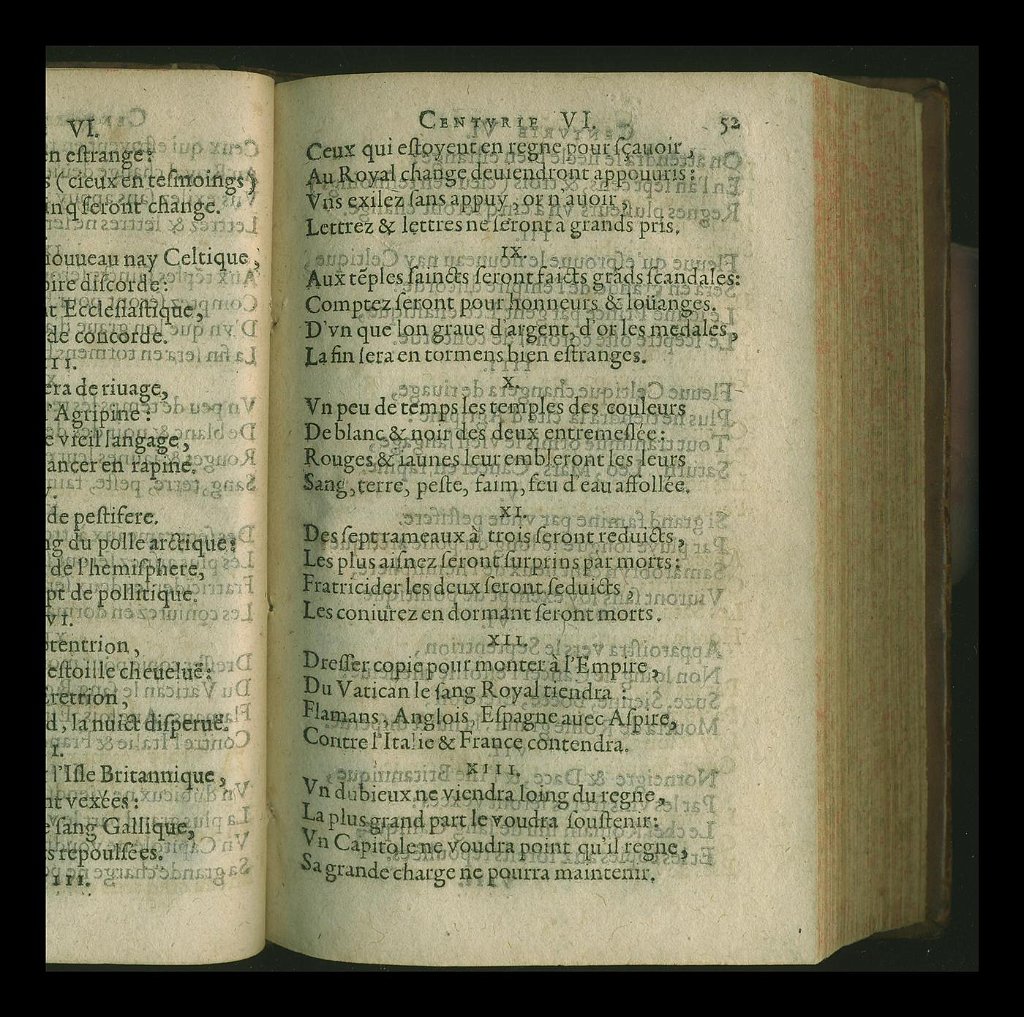 VI.
en estrange:
s (cieux en tesmoings)
inq seront change.
nouueau nay Celtique,
pire discorde:
t Ecclesiastique,
de concorde.
II.
era de riuage,
'Agripine:
e vieil langage,
ancer en rapine.
V.
de pestifere.
ng du polle arctique:
de l'hemisphere,
pt de pollitique.
VI.
ptentrion,
estoille cheueluë:
retrion,
d, la nuict disperuë.
I.
l'Isle Britannique,
nt vexées:
e sang Gallique,
s repoussées.
III.
CENTVRIE VI. 52
Ceux qui estoyent en regne pour sçauoir,
Au Royal change deuiendront appouuris:
Vns exilez sans appuy, or n'auoir,
Lettrez & lettres ne seront a grands pris.
IX.
Aux tẽples saincts seront faicts grãds scandales:
Comptez seront pour honneurs & loüanges.
D'vn que lon graue d'argent, d'or les medales,
La fin sera en tormens bien estranges.
X.
Vn peu de temps les temples des couleurs
De blanc & noir des deux entremeslée:
Rouges & iaunes leur embleront les leurs
Sang, terre, peste, faim, feu d'eau affollée.
XI.
Des sept rameaux à trois seront reduicts,
Les plus aisnez seront surprins par morts:
Fratricider les deux seront seduicts,
Les coniurez en dormant seront morts.
XII.
Dresser copie pour monter à l'Empire,
Du Vatican le sang Royal tiendra:
Flamans, Anglois, Espagne auec Aspire,
Contre l'Italie & France contendra.
XIII.
Vn dubieux ne viendra loing du regne,
La plus grand part le voudra soustenir:
Vn Capitole ne voudra point qu'il regne,
Sa grande charge ne pourra maintenir.